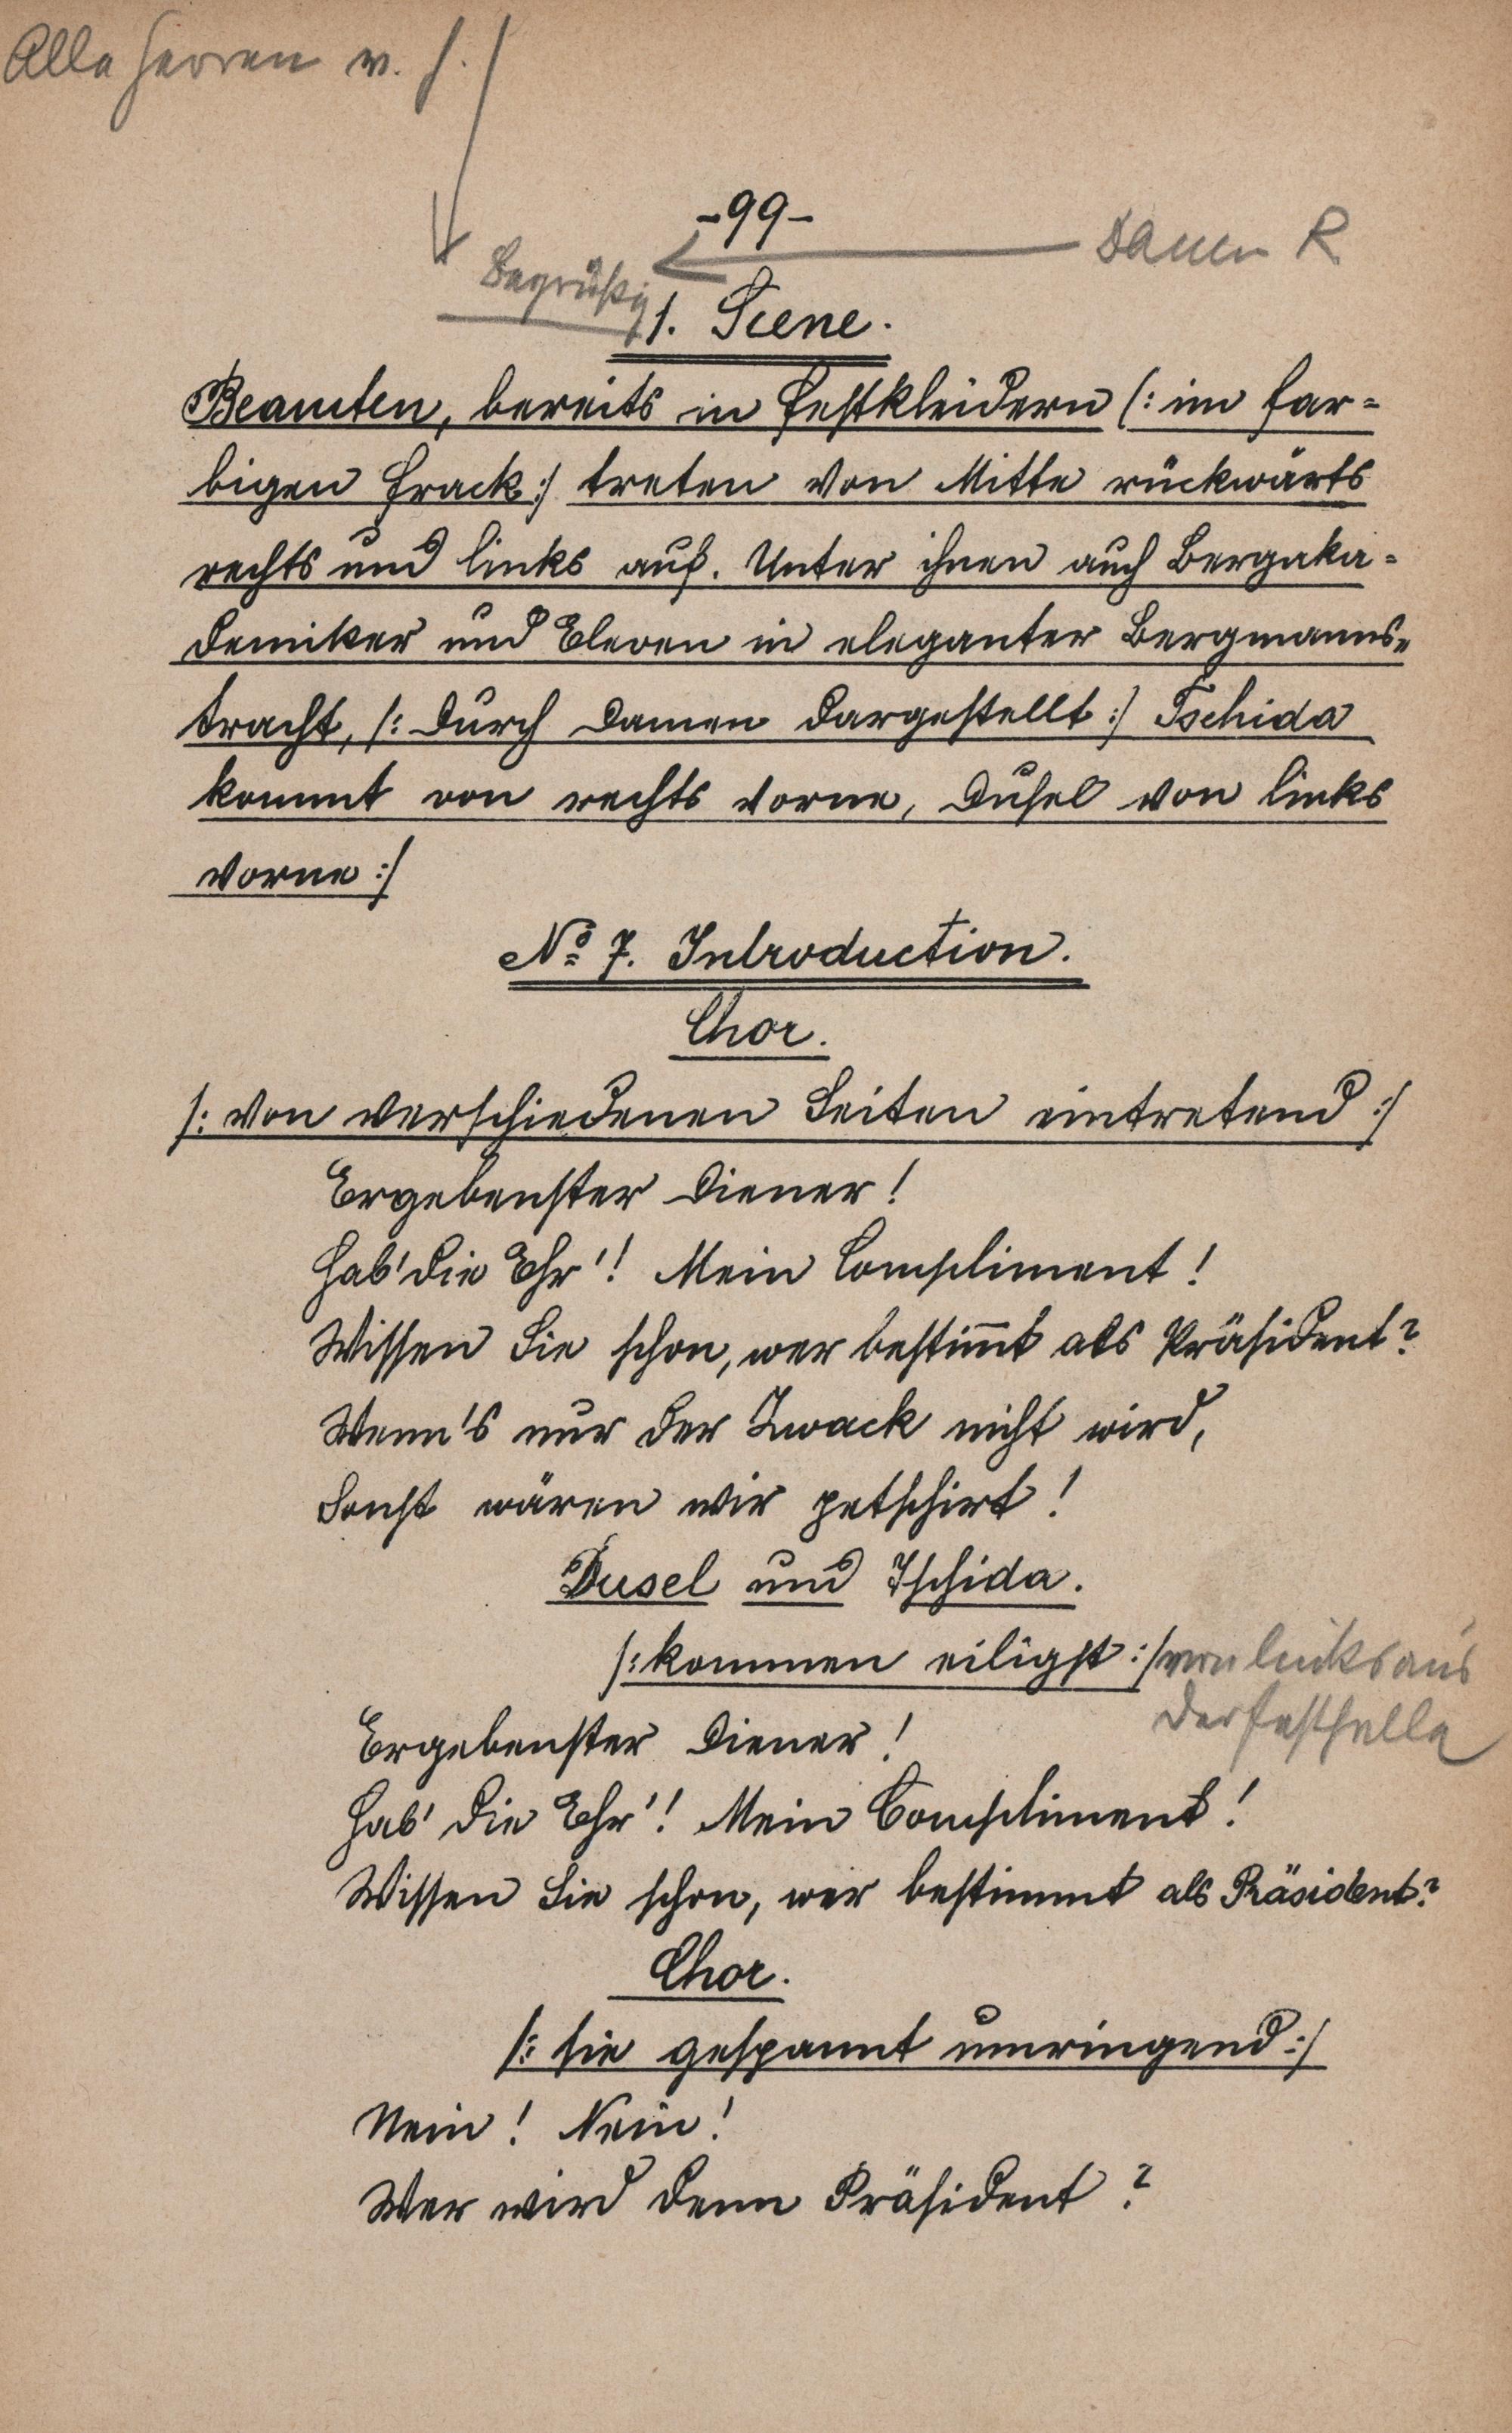 Alle Herren v. h.
-99-
Damen R
Begrüßg
1. Scene.
Beamten, bereits in Festkleidern (: im far=
bigen Frack :/ treten von Mitte rückwärts
rechts und links auf. Unter ihnen auch Bergaka=
demiker und Eleven in eleganter Bergmanns=
tracht, /: durch Damen dargestellt :/ Tschida
kommt von rechts vorne, Dusel von links
vorne :/
No 7. Introduction.
Chor.
/: von verschiedenen Seiten eintretend :/
Ergebenster Diener!
Hab' die Ehr'! Mein Compliment!
Wissen Sie schon, wer bestim̄t als Präsident?
Wenn's nur der Zwack nicht wird,
Sonst wären wir petschirt!
Dusel und Tschida.
/: kommen eiligst :/ von links aus
der Festhalle
Ergebenster Diener!
Hab' die Ehr'! Mein Compliment!
Wissen Sie schon, wer bestimmt als Präsident?
Chor.
/: sie gespannt umringend :/
Nein! Nein!
Wer wird denn Präsident?